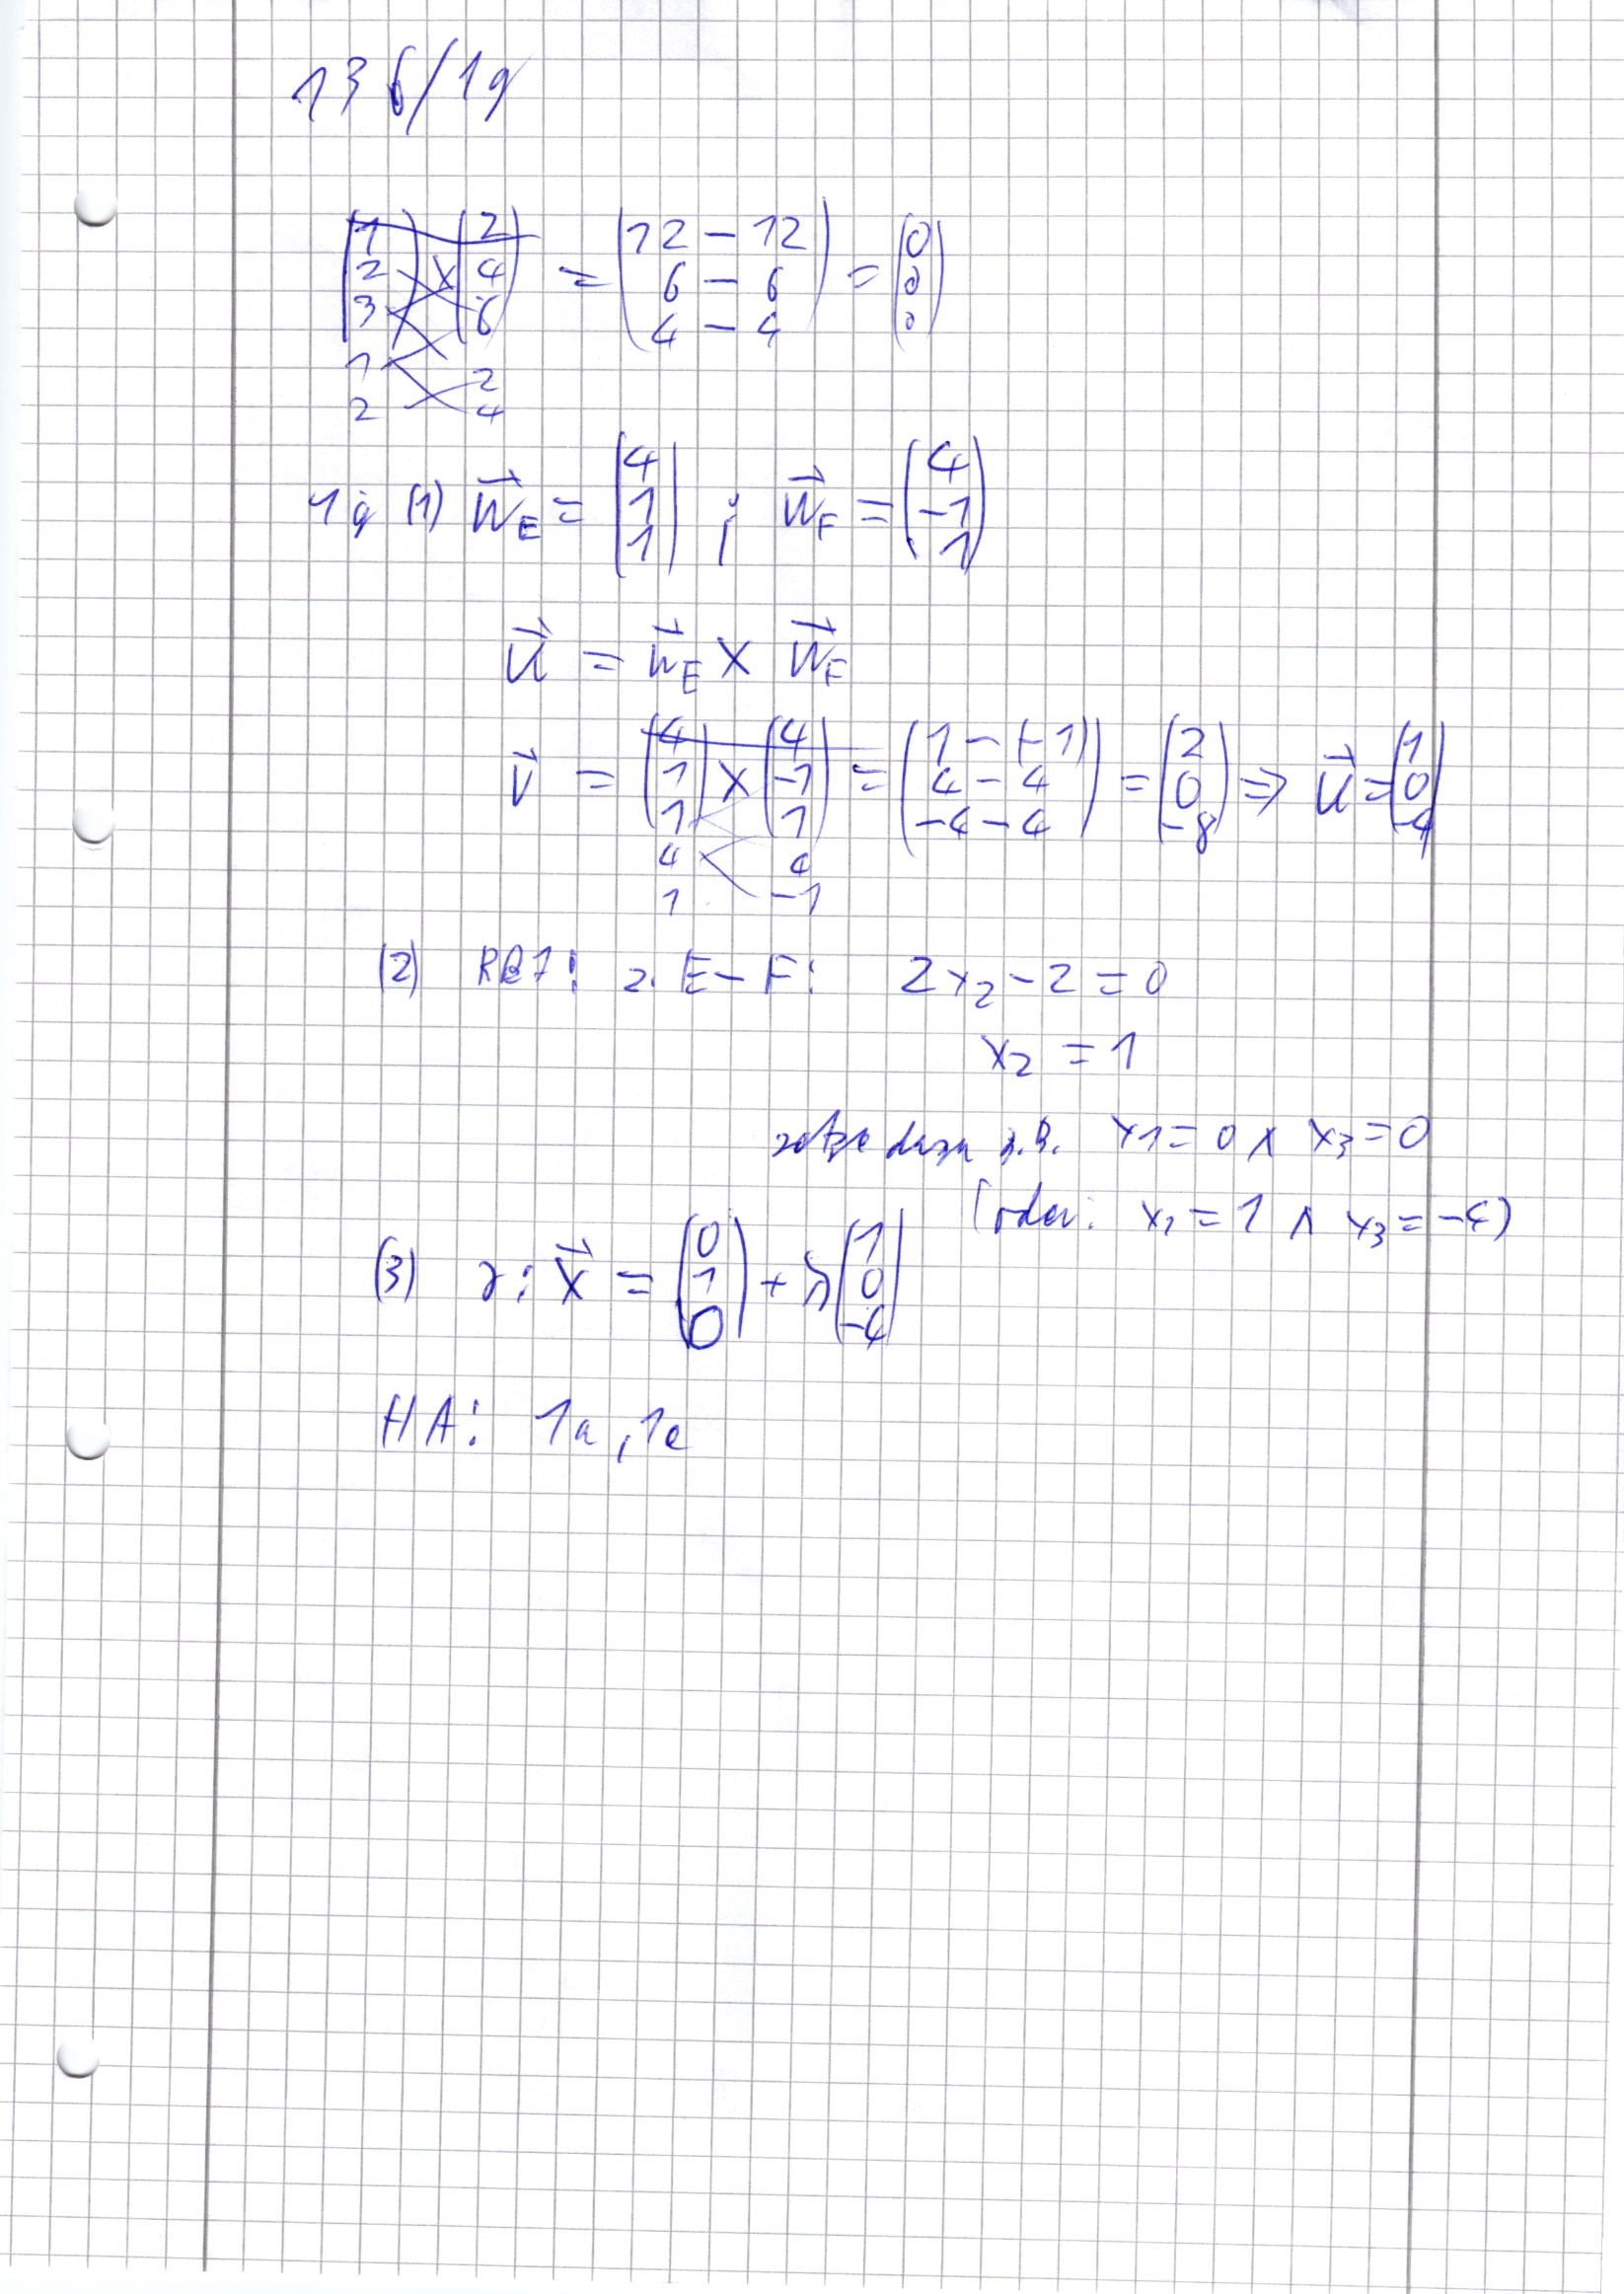 136/1g
(1 2 3) × (2 4 6) = (12 - 12, 6 - 6, 4 - 4) = (0 0 0)
1 2
2 4
1g (1) n⃗E = (4 1 1) ; n⃗F = (4 -1 1)
u⃗ = n⃗E × n⃗F
v⃗ = (4 1 1) × (4 -1 1) = (1 - (-1), 4 - 4, -4 - 4) = (2 0 -8) ⇒ u⃗ = (1 0 -4)
4 4
1 -1
(2) E - F: 2x2 - 2 = 0
x2 = 1
setze dazu z.B. x1 = 0 ∧ x3 = 0
(oder: x1 = 1 ∧ x3 = -4)
(3) s: x⃗ = (0 1 0) + λ(1 0 -4)
HA: 1a, 1e